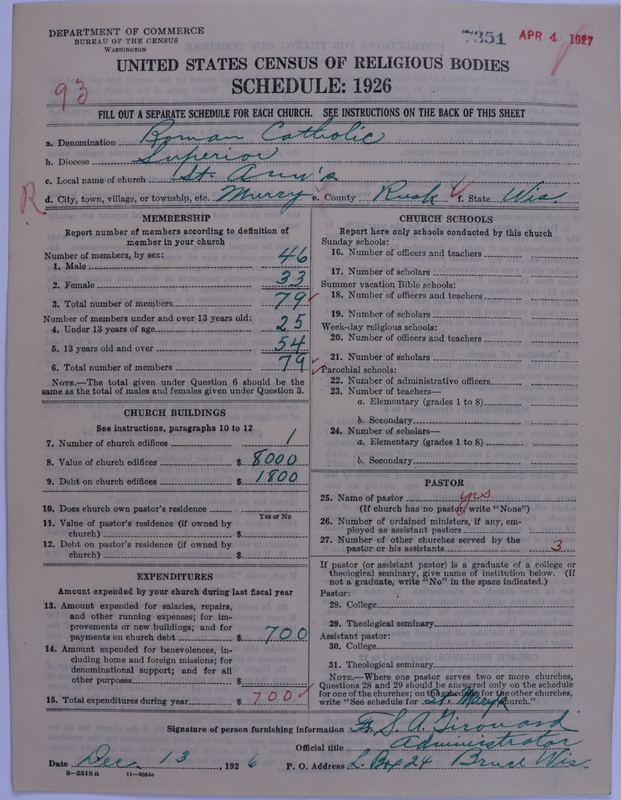 DEPARTMENT OF COMMERCE
BUREAU OF THE CENSUS
WASHINGTON
7351 APR 4 1927
UNITED STATES CENSUS OF RELIGIOUS BODIES
SCHEDULE: 1926
93
FILL OUT A SEPARATE SCHEDULE FOR EACH CHURCH. SEE INSTRUCTIONS ON THE BACK OF THIS SHEET
a. Denomination Roman Catholic
b. Diocese Superior
c. Local name of church St. Ann's
R
d. City, town, village, or township, etc. Murry e. County Rusk f. State Wis.
MEMBERSHIP
Report number of members according to definition of
member in your church
Number of members, by sex:
1. Male 46
2. Female 33
3. Total number of members 79
Number of members under and over 13 years old:
4. Under 13 years of age 25
5. 13 years old and over 54
6. Total number of members 79
NOTE.—The total given under Question 6 should be
same as the total of males and females given under Question 3.
CHURCH BUILDINGS
See instructions, paragraphs 10 to 12
7. Number of church edifices 1
8. Value of church edifices $ 8000
9. Debt on church edifices $ 1800
10. Does church own pastor's residence
Yes or No
11. Value of pastor's residence (if owned by
church) $
12. Debt on pastor's residence (if owned by
church) $
EXPENDITURES
Amount expended by your church during last fiscal year
13. Amount expended for salaries, repairs,
and other running expenses; for im-
provements or new buildings; and for
payments on church debt $ 700
14. Amount expended for benevolences, in-
cluding home and foreign missions; for
denominational support; and for all
other purposes $
15. Total expenditures during year $ 700
CHURCH SCHOOLS
Report here only schools conducted by this church
Sunday schools:
16. Number of officers and teachers
17. Number of scholars
Summer vacation Bible schools:
18. Number of officers and teachers
19. Number of scholars
Week-day religious schools:
20. Number of officers and teachers
21. Number of scholars
Parochial schools:
22. Number of administrative officers
23. Number of teachers—
a. Elementary (grades 1 to 8)
b. Secondary
24. Number of scholars—
a. Elementary (grades 1 to 8)
b. Secondary
PASTOR
25. Name of pastor yes
(If church has no pastor, write "None")
26. Number of ordained ministers, if any, em-
ployed as assistant pastors
27. Number of other churches served by the
pastor or his assistants 3
If pastor (or assistant pastor) is a graduate of a college or
theological seminary, give name of institution below. (If
not a graduate, write "No" in the space indicated.)
Pastor:
28. College
29. Theological seminary
Assistant pastor:
30. College
31. Theological seminary
NOTE.—Where one pastor serves two or more churches,
Questions 28 and 29 should be answered only on the schedule
for one of the churches; on the schedule for the other churches,
write "See schedule for St. Mary's church."
Signature of person furnishing information Fr. S. A. Girouard
Official title Administrator
Date Dec. 13, 1926 P. O. Address L. Box 24 Bruce Wis.
8—5518a 11—9051c